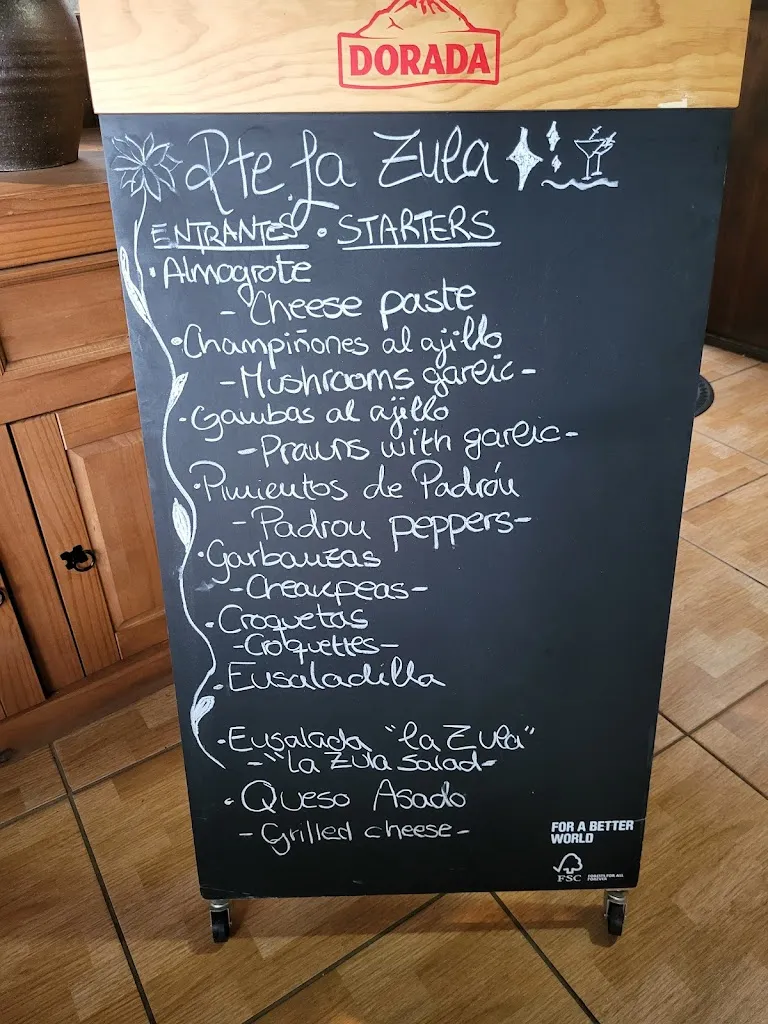 DORADA
Rte. La Zula
ENTRANTES • STARTERS
• Almogrote
- Cheese paste
• Champiñones al ajillo
- Mushrooms garlic -
- Gambas al ajillo
- Prawns with garlic -
• Pimientos de Padrón
- Padron peppers -
• Garbanzas
- Cheakpeas -
• Croquetas
- Croquettes -
• Ensaladilla
• Ensalada "La Zula"
- "La Zula salad -
• Queso Asado
- Grilled cheese -
FOR A BETTER
WORLD
FSC
FORESTS FOR ALL
FOREVER